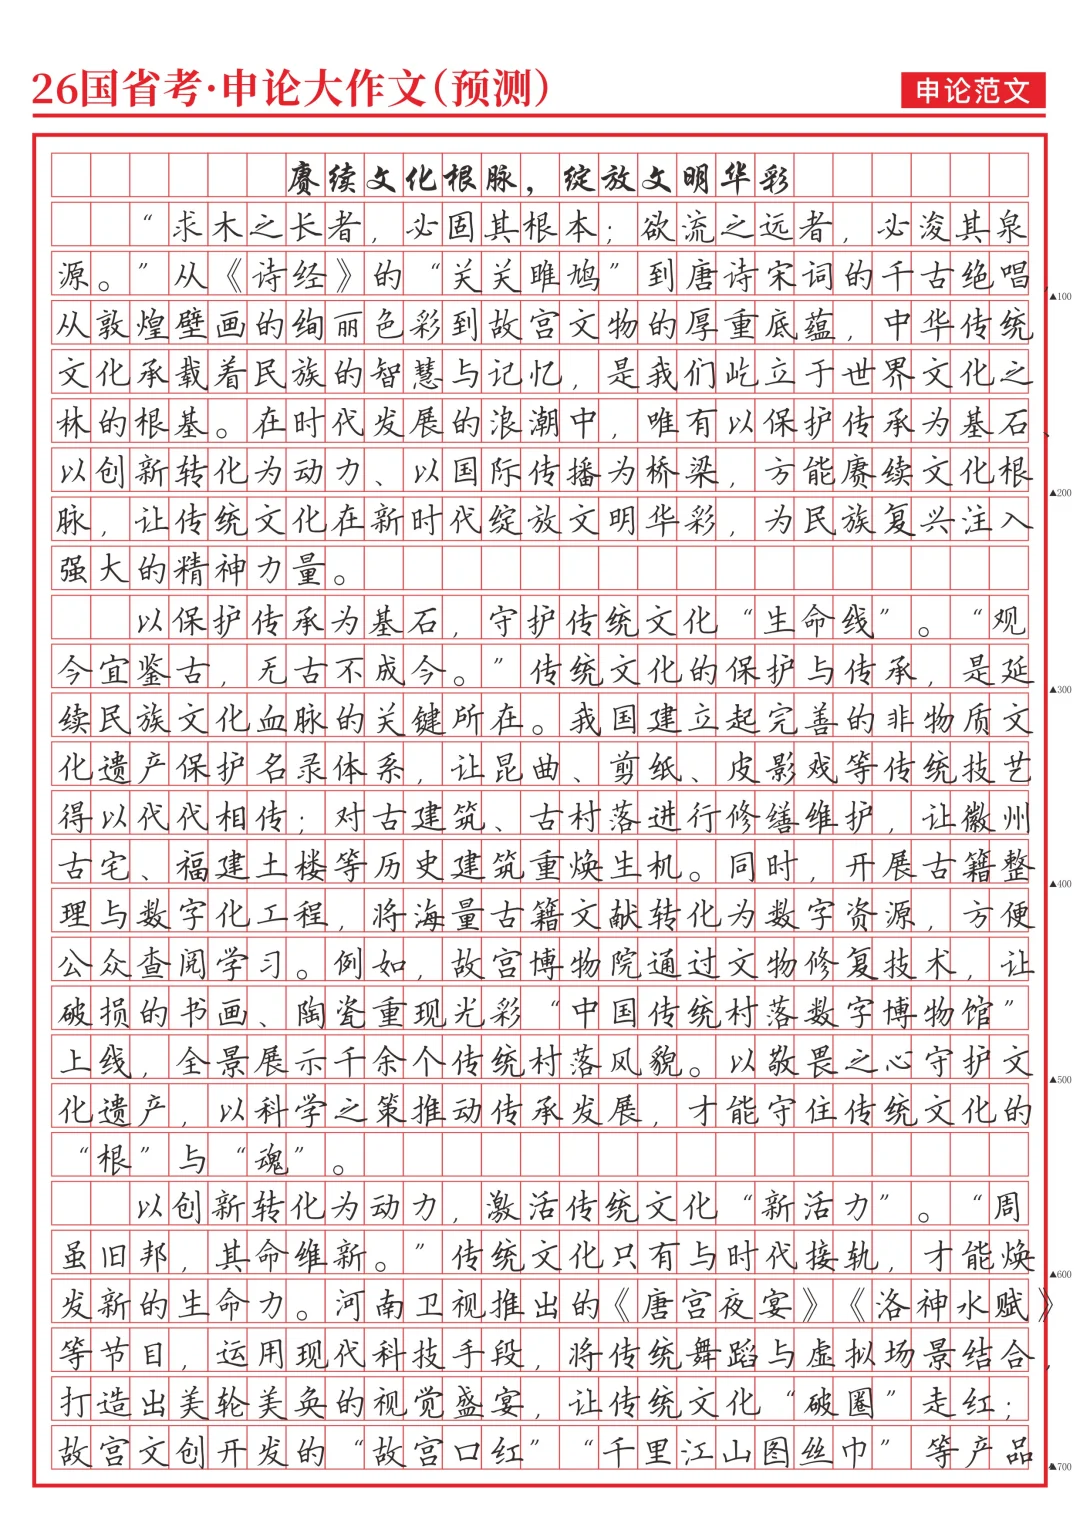 26国省考·申论大作文(预测)
申论范文
赓续文化根脉，绽放文明华彩
“求木之长者，必固其根本；欲流之远者，必浚其泉
源。”从《诗经》的“关关雎鸠”到唐诗宋词的千古绝唱，
▲100
从敦煌壁画的绚丽色彩到故宫文物的厚重底蕴，中华传统
文化承载着民族的智慧与记忆，是我们屹立于世界文化之
林的根基。在时代发展的浪潮中，唯有以保护传承为基石、
以创新转化为动力、以国际传播为桥梁，方能赓续文化根
▲200
脉，让传统文化在新时代绽放文明华彩，为民族复兴注入
强大的精神力量。
以保护传承为基石，守护传统文化“生命线”。“观
今宜鉴古，无古不成今。”传统文化的保护与传承，是延
▲300
续民族文化血脉的关键所在。我国建立起完善的非物质文
化遗产保护名录体系，让昆曲、剪纸、皮影戏等传统技艺
得以代代相传；对古建筑、古村落进行修缮维护，让徽州
古宅、福建土楼等历史建筑重焕生机。同时，开展古籍整
▲400
理与数字化工程，将海量古籍文献转化为数字资源，方便
公众查阅学习。例如，故宫博物院通过文物修复技术，让
破损的书画、陶瓷重现光彩“中国传统村落数字博物馆”
上线，全景展示千余个传统村落风貌。以敬畏之心守护文
▲500
化遗产，以科学之策推动传承发展，才能守住传统文化的
“根”与“魂”。
以创新转化为动力，激活传统文化“新活力”。“周
虽旧邦，其命维新。”传统文化只有与时代接轨，才能焕
▲600
发新的生命力。河南卫视推出的《唐宫夜宴》《洛神水赋》
等节目，运用现代科技手段，将传统舞蹈与虚拟场景结合，
打造出美轮美奂的视觉盛宴，让传统文化“破圈”走红；
故宫文创开发的“故宫口红”“千里江山图丝巾”等产品
▲700